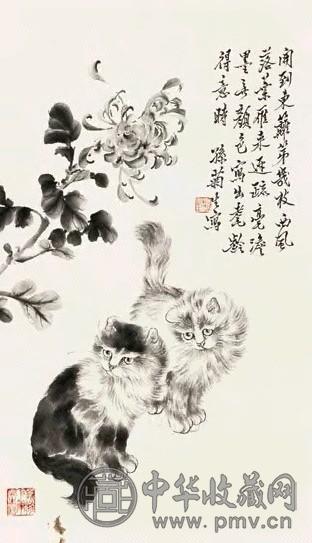 開到東籬第幾枝西風
落葉雁來遲疏毫澹
墨無顏色寫出耄齡
得意時 孫菊生寫
中华收藏网
www.pmv.cn